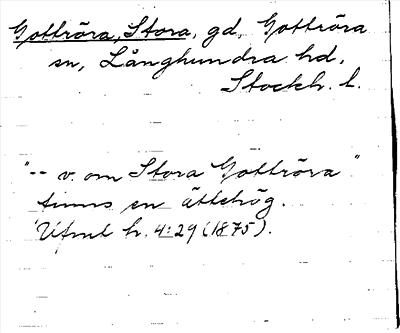 Gottröra, Stora, gd, Gottröra
sn, Långhundra hd,
Stockh. l.
"-- v. om Stora Gottröra"
finns en ättehög.
Ufmt h. 4:29 (1875).